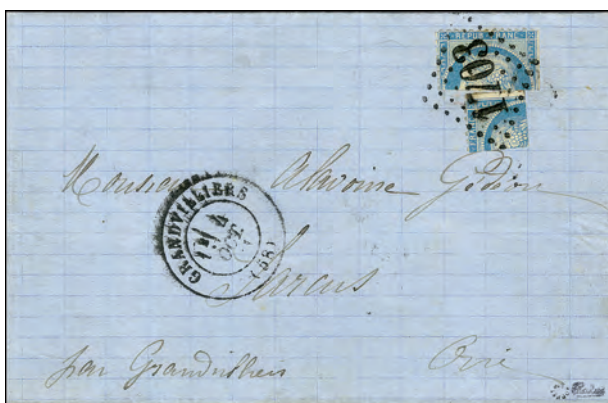 REPUB. FRANC.
1703
Monsieur Alavoine Gédéon
GRANDVILLIERS
4
OCT.
(58)
Sarcus
par Grandvilliers Oise